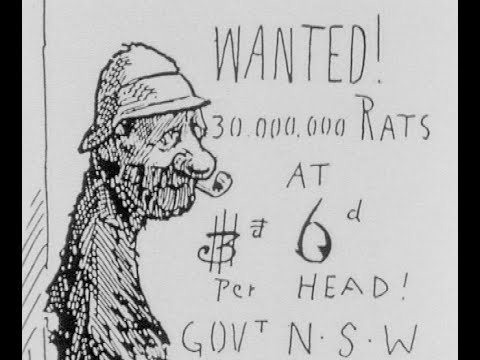 WANTED!
30.000,000 RATS
AT
6d
Per HEAD!
GOVT N·S·W